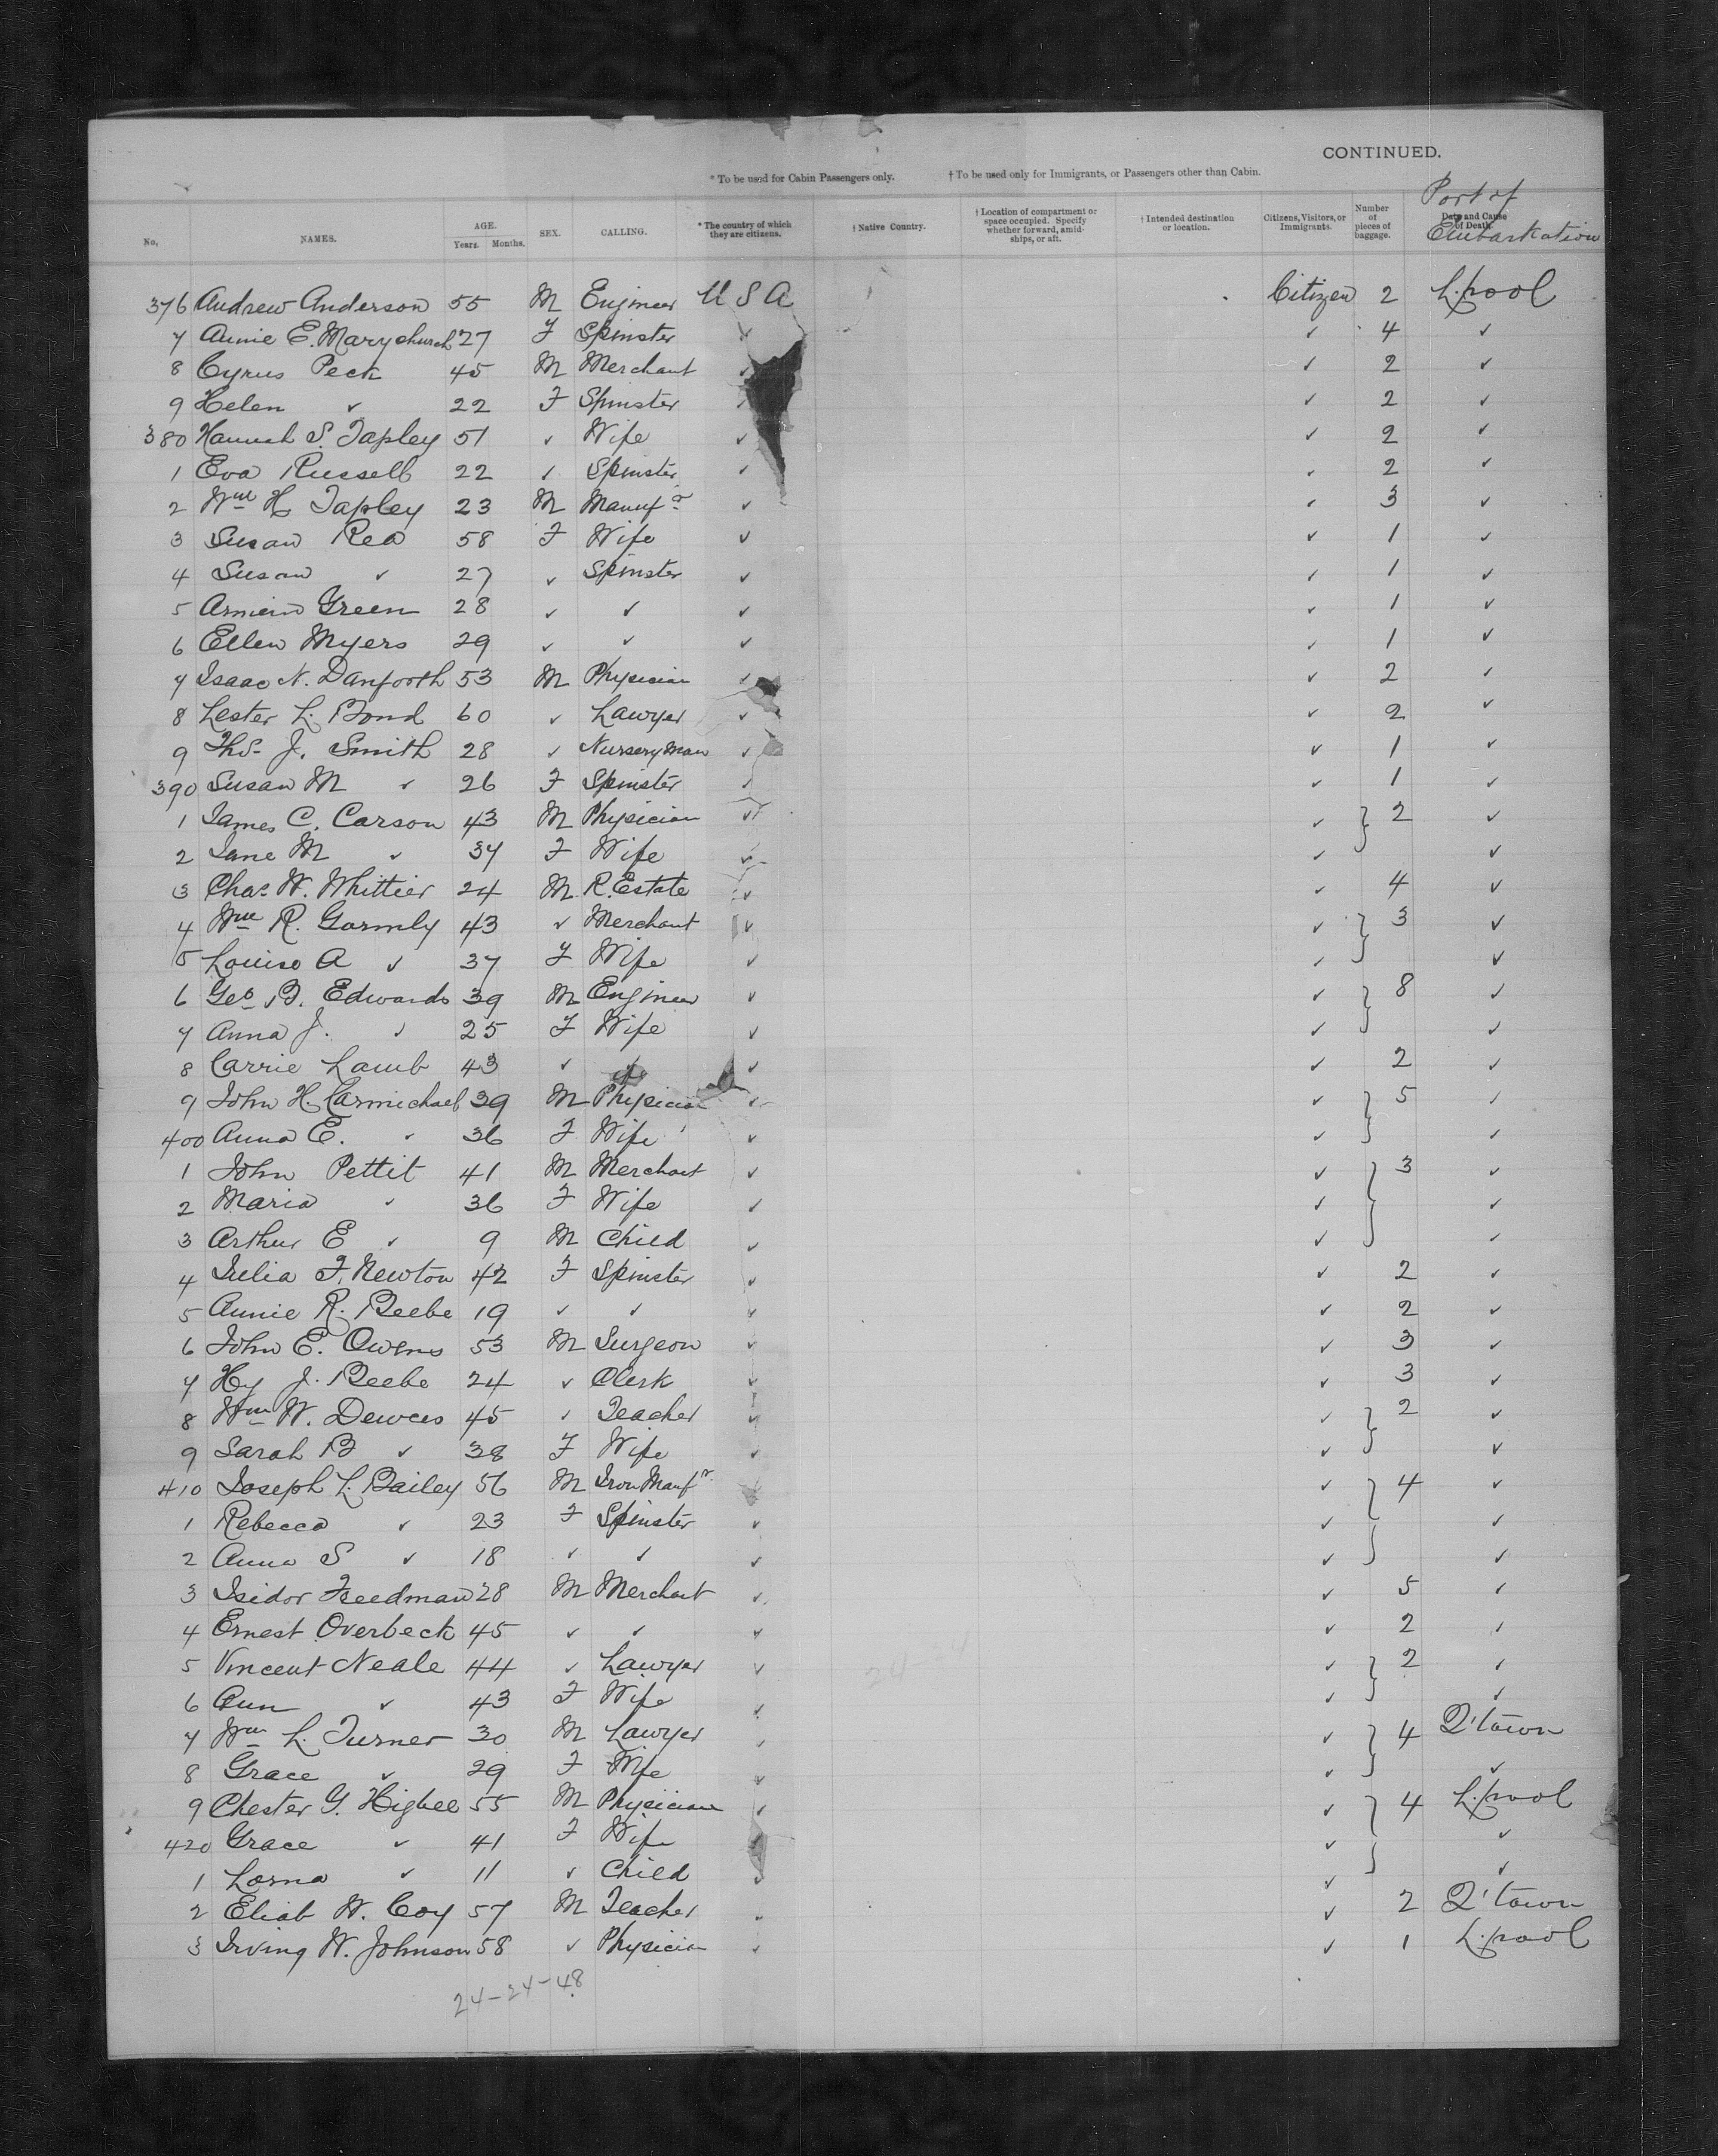 CONTINUED.
* To be used for Cabin Passengers only. † To be used only for Immigrants, or Passengers other than Cabin.
No. NAMES. AGE. Years. Months. SEX. CALLING. * The country of which they are citizens. † Native Country. † Location of compartment or space occupied. Specify whether forward, amidships, or aft. † Intended destination or location. Citizens, Visitors, or Immigrants. Number of pieces of baggage. Date and Cause of Death. Port of Embarkation
376 Andrew Anderson 55 M Engineer U S A Citizen 2 L.pool
7 Annie E. Marychurch 27 F Spinster ✓ ✓ 4 ✓
8 Cyrus Peck 45 M Merchant ✓ ✓ 2 ✓
9 Helen ✓ 22 F Spinster ✓ ✓ 2 ✓
380 Hannah S. Tapley 51 ✓ Wife ✓ ✓ 2 ✓
1 Eva Russell 22 ✓ Spinster ✓ ✓ 2 ✓
2 Wm H Tapley 23 M Manufr ✓ ✓ 3 ✓
3 Susan Rea 58 F Wife ✓ ✓ 1 ✓
4 Susan ✓ 27 ✓ Spinster ✓ ✓ 1 ✓
5 Green 28 ✓ ✓ ✓ ✓ 1 ✓
6 Ellen Myers 29 ✓ ✓ ✓ ✓ 1 ✓
7 Isaac N. Danforth 53 M Physician ✓ ✓ 2 ✓
8 Lester L. Bond 60 ✓ Lawyer ✓ ✓ 2 ✓
9 Ths J. Smith 28 ✓ Nurseryman ✓ ✓ 1 ✓
390 Susan M ✓ 26 F Spinster ✓ ✓ 1 ✓
1 James C. Carson 43 M Physician ✓ ✓ } 2 ✓
2 Jane M ✓ 37 F Wife ✓ ✓ ✓
3 Chas. W. Whittier 24 M R. Estate ✓ ✓ 4 ✓
4 Wm R. Gormly 43 ✓ Merchant ✓ ✓ } 3 ✓
5 Louise A ✓ 37 F Wife ✓ ✓ ✓
6 Geo B. Edwards 39 M Engineer ✓ ✓ } 8 ✓
7 Anna J. ✓ 25 F Wife ✓ ✓ ✓
8 Carrie Lamb 43 ✓ ✓ ✓ 2 ✓
9 John H. Carmichael 39 M Physician ✓ ✓ } 5 ✓
400 Anna E. ✓ 36 F Wife ✓ ✓ ✓
1 John Pettit 41 M Merchant ✓ ✓ } 3 ✓
2 Maria ✓ 36 F Wife ✓ ✓ ✓
3 Arthur E ✓ 9 M Child ✓ ✓ ✓
4 Julia F. Newton 42 F Spinster ✓ ✓ 2 ✓
5 Annie R. Beebe 19 ✓ ✓ ✓ ✓ 2 ✓
6 John E. Owens 53 M Surgeon ✓ ✓ 3 ✓
7 Hy J. Beebe 24 ✓ Clerk ✓ ✓ 3 ✓
8 Wm W. Dewees 45 ✓ Teacher ✓ ✓ } 2 ✓
9 Sarah B ✓ 38 F Wife ✓ ✓ ✓
410 Joseph L. Bailey 56 M Iron Manfr. ✓ } 4 ✓
1 Rebecca ✓ 23 F Spinster ✓ ✓ ✓
2 Anna S ✓ 18 ✓ ✓ ✓ ✓ ✓
3 Isidor Freedman 28 M Merchant ✓ ✓ 5 ✓
4 Ernest Overbeck 45 ✓ ✓ ✓ ✓ 2 ✓
5 Vincent Neale 44 ✓ Lawyer ✓ ✓ } 2 ✓
6 Ann ✓ 43 F Wife ✓ ✓ ✓
7 Wm L. Turner 30 M Lawyer ✓ ✓ } 4 Q'town
8 Grace ✓ 29 F Wife ✓ ✓ ✓
9 Chester G. Higbee 55 M Physician ✓ ✓ } 4 L.pool
420 Grace ✓ 41 F Wife ✓ ✓ ✓
1 Lorna ✓ 11 ✓ Child ✓ ✓ ✓
2 Eliab W. Coy 57 M Teacher ✓ ✓ 2 Q'town
3 Irving W. Johnson 58 ✓ Physician ✓ ✓ 1 L.pool
24-24-48